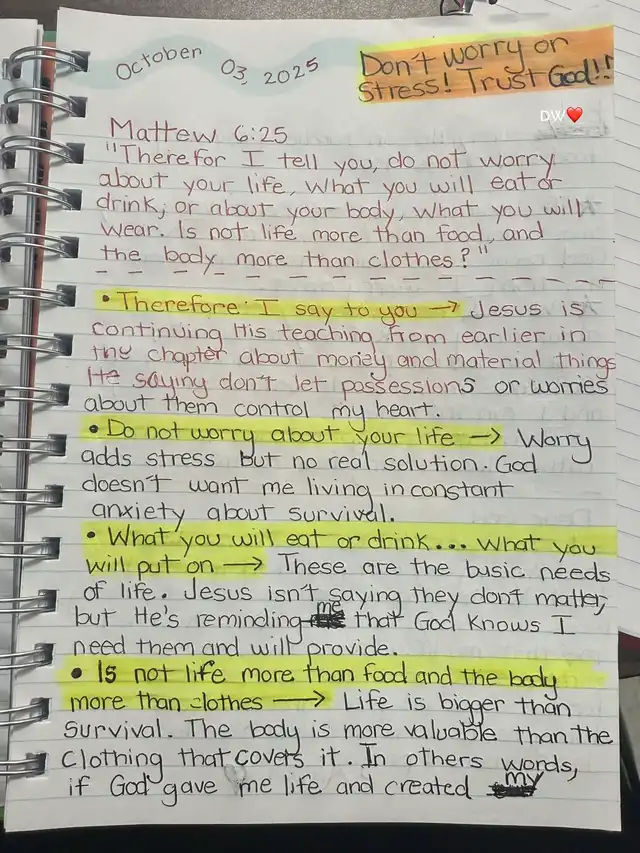 October 03, 2025
Don't worry or
Stress! Trust God!!
D.W❤️
Mattew 6:25
"Therefor I tell you, do not worry
about your life, what you will eat or
drink; or about your body, what you will
wear. Is not life more than food, and
the body more than clothes?"
• Therefore I say to you → Jesus is
continuing His teaching from earlier in
the chapter about money and material things
He saying don't let possessions or worries
about them control my heart.
• Do not worry about your life → Worry
adds stress but no real solution. God
doesn't want me living in constant
anxiety about survival.
• What you will eat or drink... what you
will put on → These are the basic needs
of life. Jesus isn't saying they don't matter,
but He's reminding me that God knows I
need them and will provide.
• Is not life more than food and the body
more than clothes → Life is bigger than
survival. The body is more valuable than the
clothing that covers it. In others words,
if God gave me life and created my